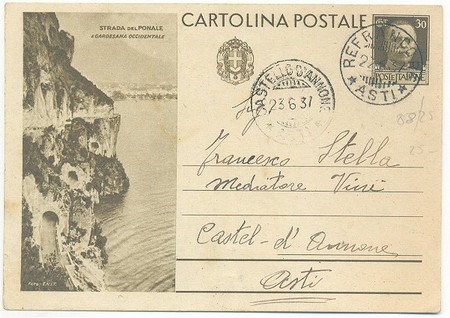 STRADA DEL PONALE
E GARDESANA OCCIDENTALE
CARTOLINA POSTALE
30
POSTE ITALIANE
ASTI
CASTELLO D'ANNONE
23.6.37
Sig
Francesco Stella
Mediatore Vini
Castel-d'Annone
Asti
25